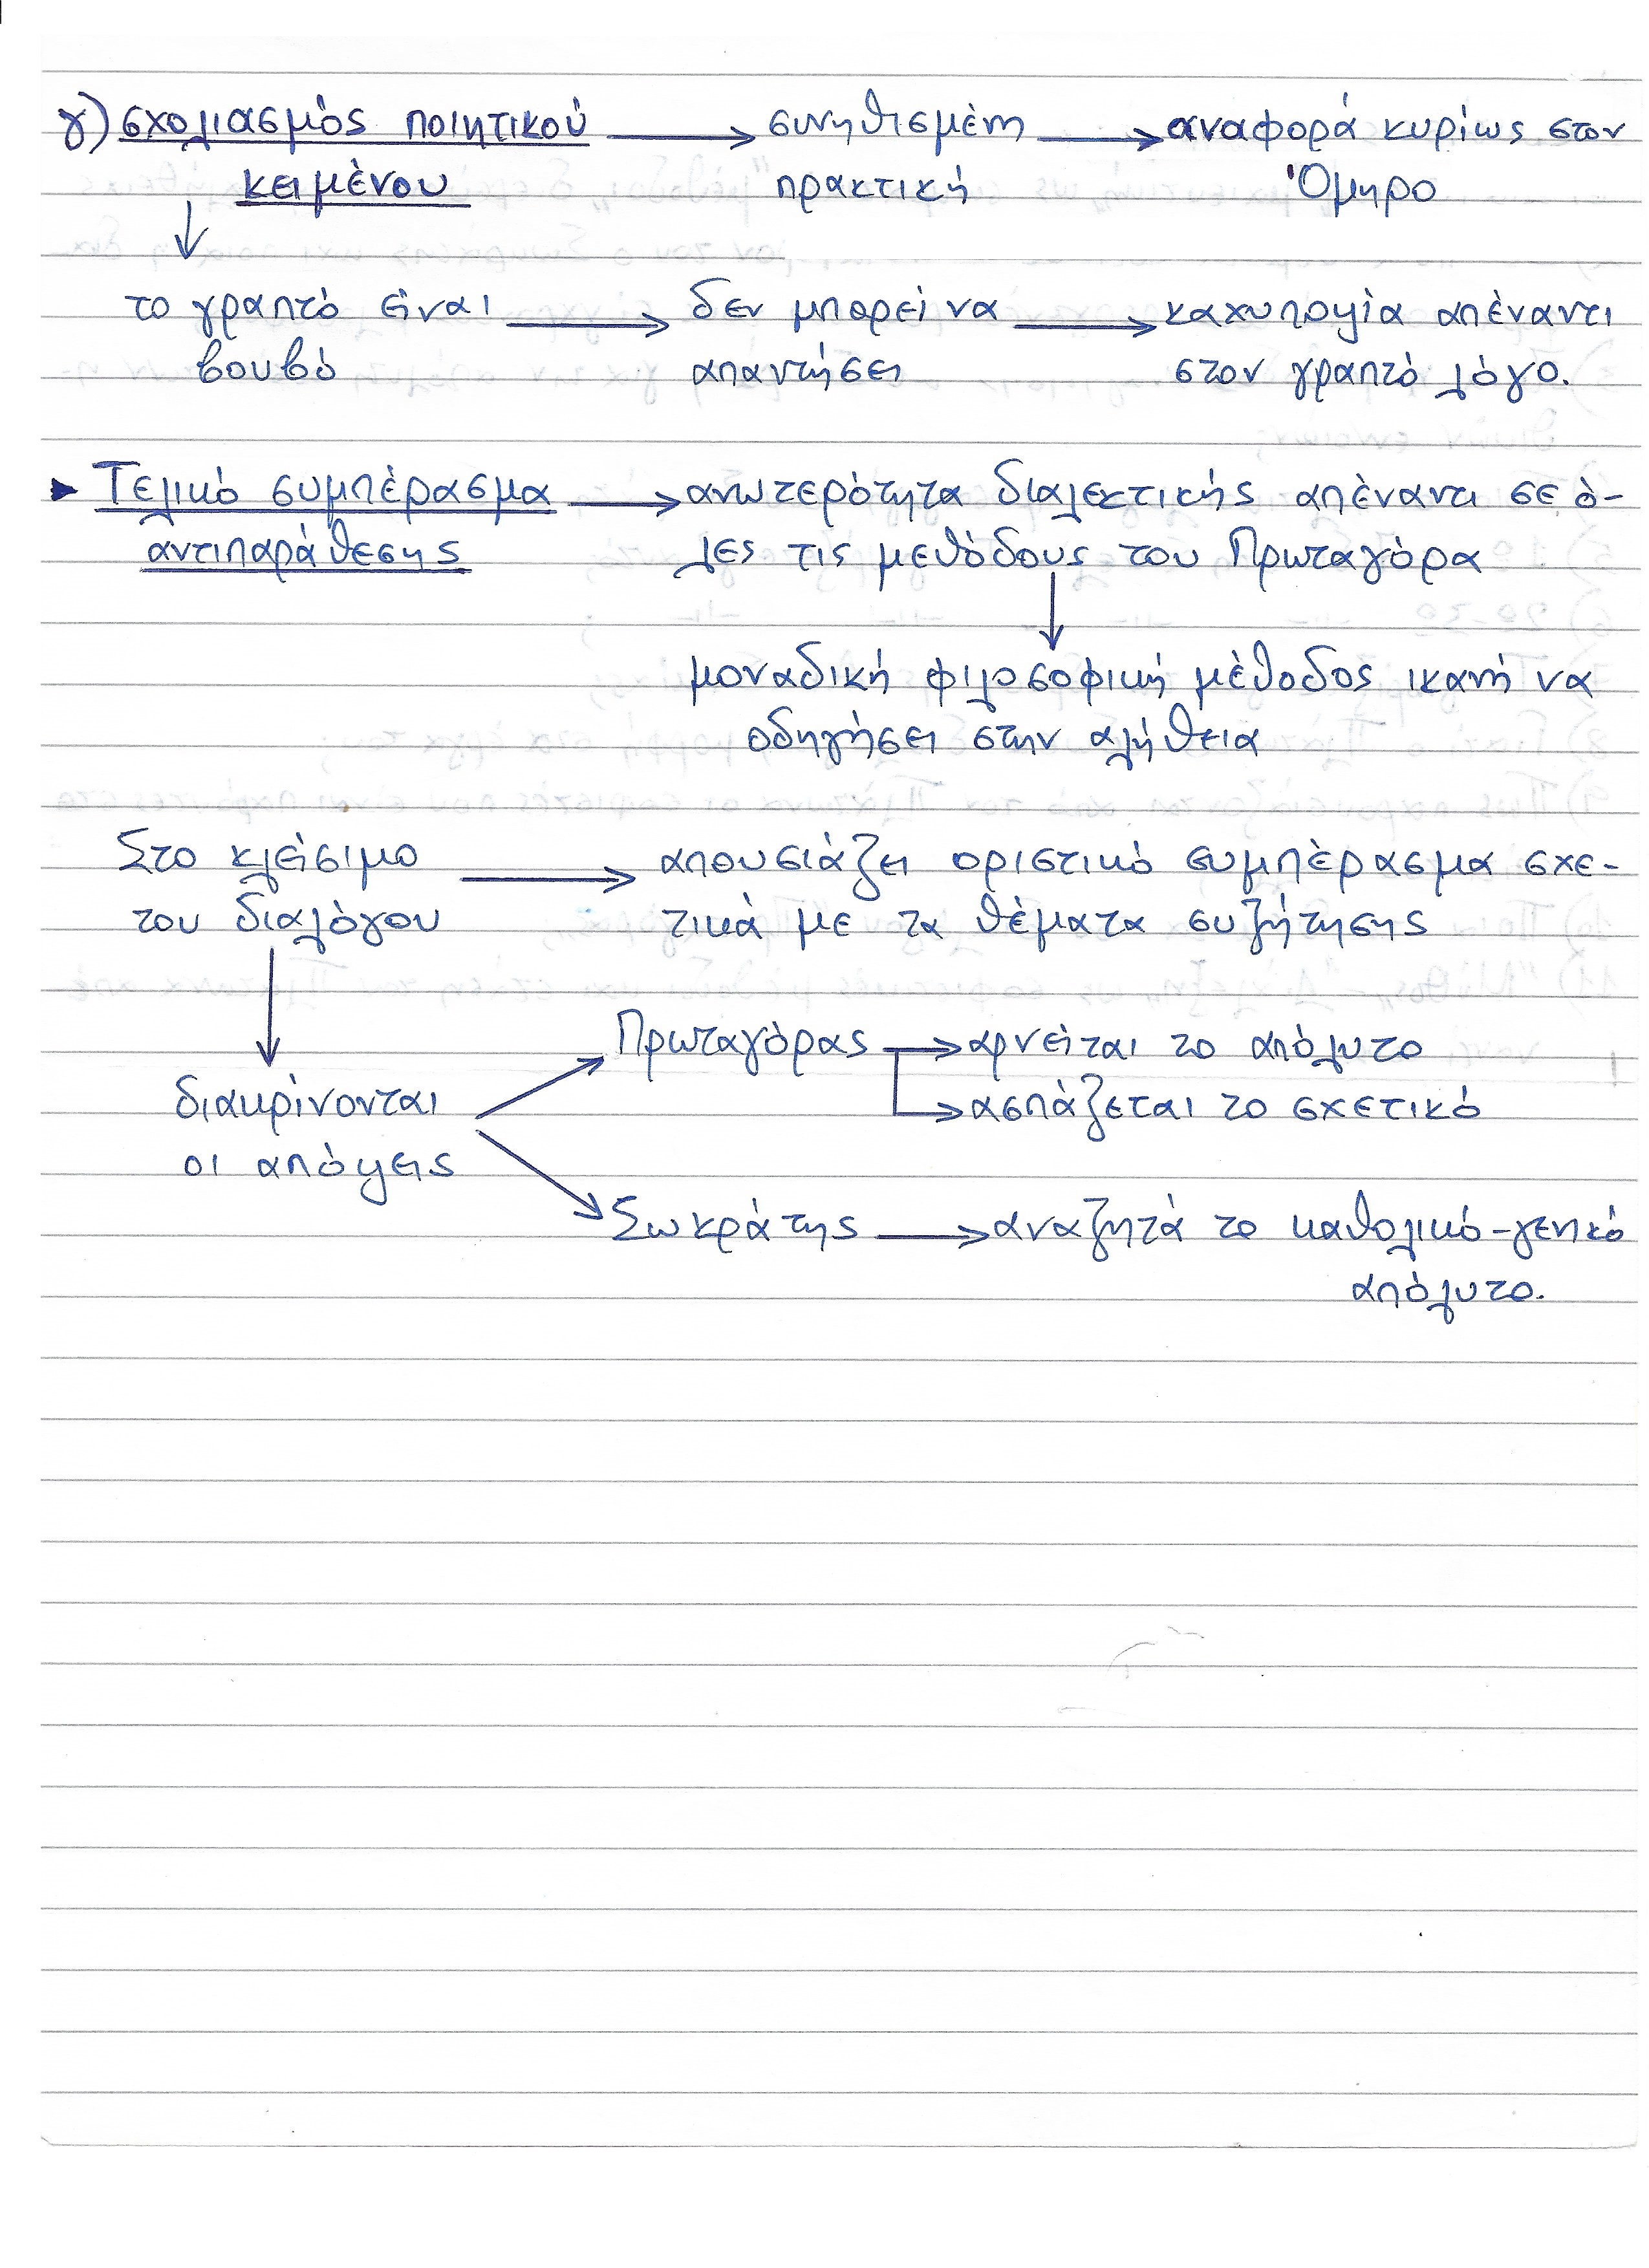 γ) σχολιασμός ποιητικού → συνηθισμένη → αναφορά κυρίως στον
κειμένου πρακτική Όμηρο
το γραπτό είναι → δεν μπορεί να → καχυποψία απέναντι
βουβό απαντήσει στον γραπτό λόγο.
► Τελικό συμπέρασμα → ανωτερότητα διαλεκτικής απέναντι σε ό-
αντιπαράθεσης λες τις μεθόδους του Πρωταγόρα
μοναδική φιλοσοφική μέθοδος ικανή να
οδηγήσει στην αλήθεια
Στο κλείσιμο → απουσιάζει οριστικό συμπέρασμα σχε-
του διαλόγου τικά με τα θέματα συζήτησης
Πρωταγόρας → αρνείται το απόλυτο
διακρίνονται → ασπάζεται το σχετικό
οι απόψεις
Σωκράτης → αναζητά το καθολικό-γενικό
απόλυτο.